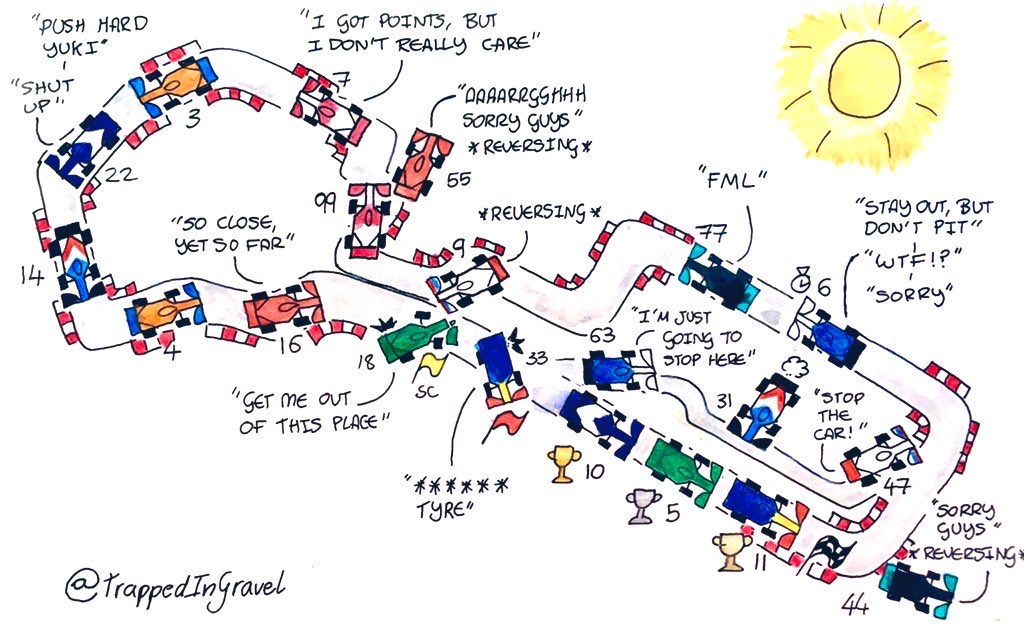 "PUSH HARD
YUKI"
"SHUT
UP"
"I GOT POINTS, BUT
I DON'T REALLY CARE"
"AAAARRGGHHH
SORRY GUYS"
*REVERSING*
3
7
22
55
99
14
"SO CLOSE,
YET SO FAR"
*REVERSING*
9
"FML"
77
"STAY OUT, BUT
DON'T PIT"
"WTF!?"
"SORRY"
6
4
16
18
SC
"GET ME OUT
OF THIS PLACE"
33
63
"I'M JUST
GOING TO
STOP HERE"
31
"STOP
THE
CAR!"
47
"******
TYRE"
10
5
11
"SORRY
GUYS"
*REVERSING*
44
@TrappedInGravel